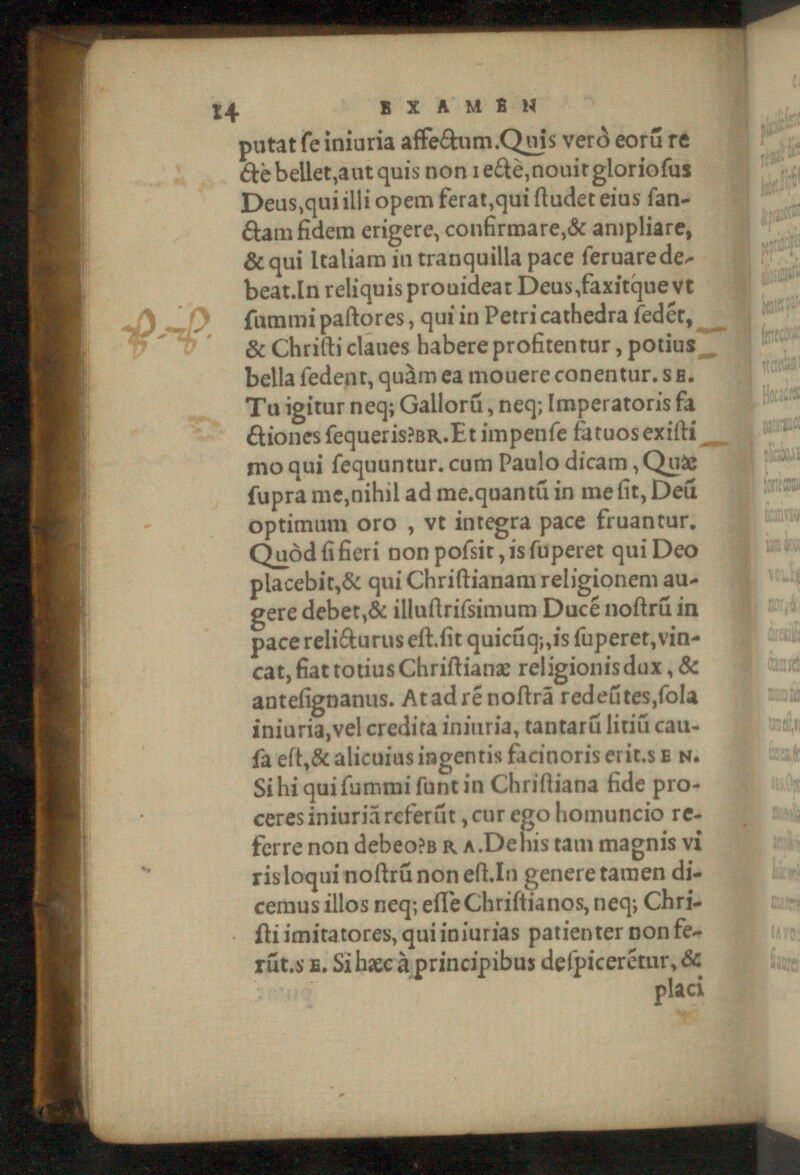 14 EXAMEN
putat ſe iniuria affectum. Quis verò eorũ re
ctè bellet, aut quis non rectè, nouit glorioſus
Deus, qui illi opem ferat, qui ſtudet eius ſan-
ctam fidem erigere, confirmare, & ampliare,
& qui Italiam in tranquilla pace ſeruare de-
beat. In reliquis prouideat Deus, faxitque vt
ſummi paſtores, qui in Petri cathedra ſedét,
& Chriſti claues habere profitentur, potius
bella ſedent, quàm ea mouere conentur. SE.
Tu igitur neq; Gallorũ, neq; Imperatoris fa
ctiones ſequeris? BR. Et impenſe fatuos exiſti
mo qui ſequuntur. cum Paulo dicam, Quæ
ſupra me, nihil ad me. quantũ in me ſit, Deũ
optimum oro, vt integra pace fruantur.
Quòd ſi fieri non poſsit, is ſuperet qui Deo
placebit, & qui Chriſtianam religionem au-
gere debet, & illuſtriſsimum Ducé noſtrũ in
pace relicturus eſt. ſit quicũq;, is ſuperet, vin-
cat, fiat totius Chriſtianæ religionis dux, &
anteſignanus. At ad ré noſtrã redeũtes, ſola
iniuria, vel credita iniuria, tantarũ litiũ cau-
ſa eſt, & alicuius ingentis facinoris erit. SEN.
Si hi qui ſummi ſunt in Chriſtiana fide pro-
ceres iniuriã referũt, cur ego homuncio re-
ferre non debeo? BRA. De his tam magnis vi
ris loqui noſtrũ non eſt. In genere tamen di-
cemus illos neq; eſſe Chriſtianos, neq; Chri-
ſti imitatores, qui iniurias patienter non fe-
rũt. SE. Si hæc à principibus deſpicerétur, &
placi